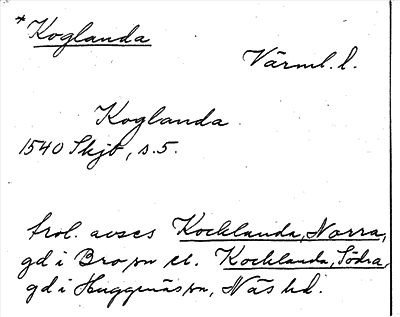 *Koglanda
Värml. l.
Koglanda.
1540 Skjb, s. 5.
trol. avses Kocklanda, Norra,
gd i Bro sn el. Kocklanda, Södra,
gd i Huggenäs sn, Näs hd.